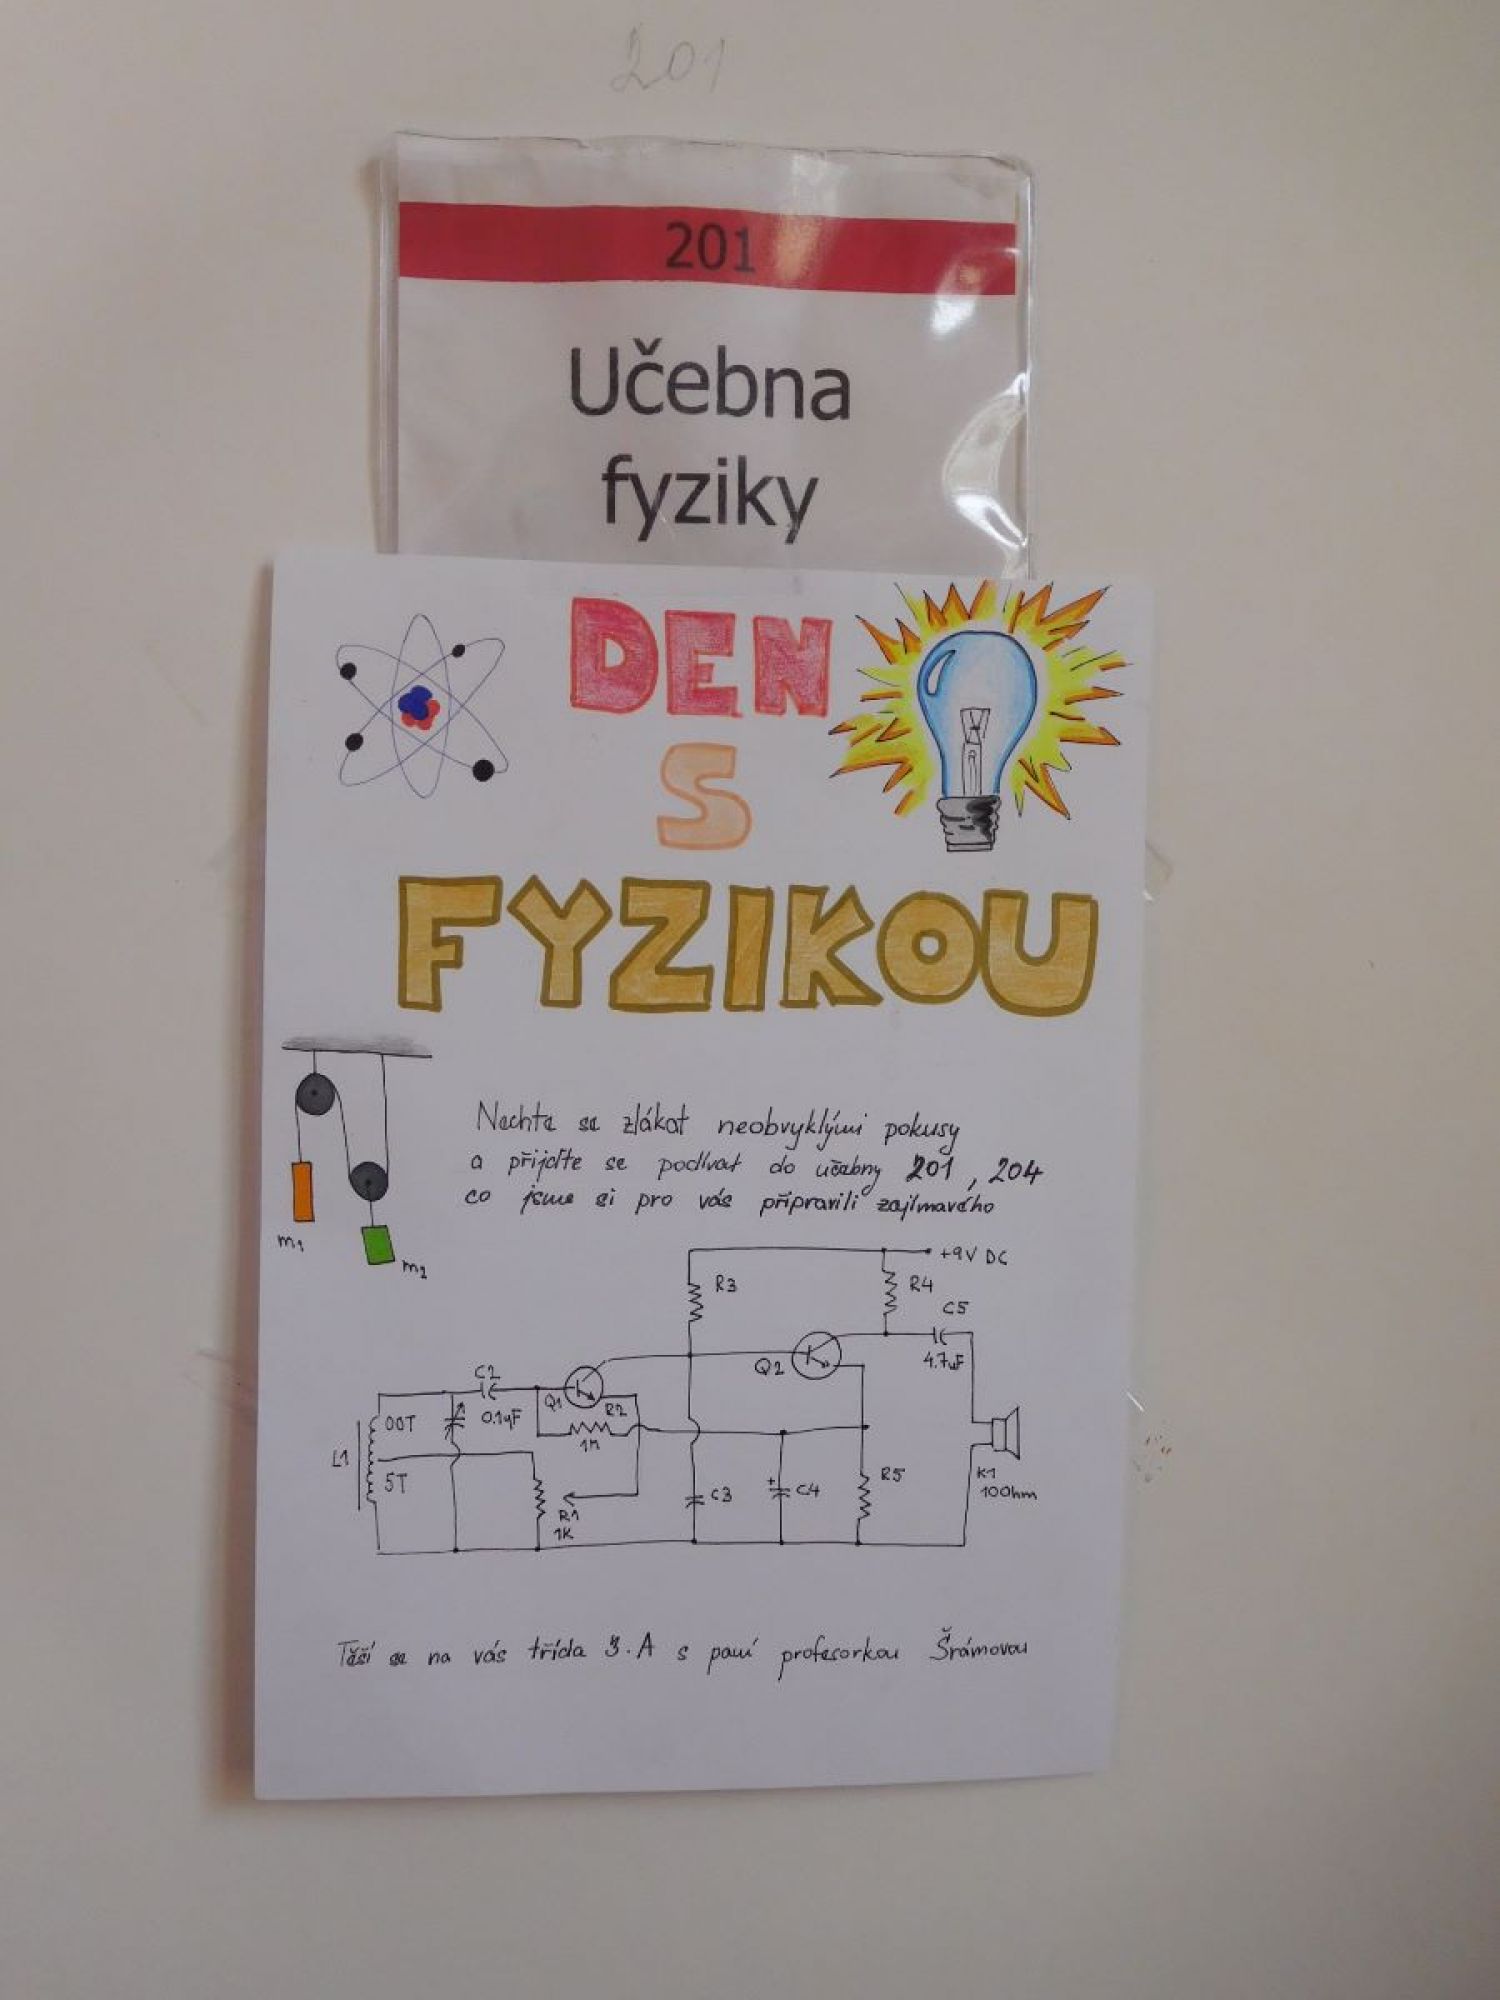 201
201
Učebna
fyziky
DEN
S
FYZIKOU
Nechte se zlákat neobvyklými pokusy
a přijďte se podívat do učebny 201, 204
co jsme si pro vás připravili zajímavého
m1
m2
+9V DC
R3
R4
C5
4.7uF
Q2
C2
0.1uF
Q1
R2
1M
00T
L1
5T
R1
1K
C3
+
C4
R5
K1
100hm
Těší se na vás třída 3.A s paní profesorkou Šrámovou